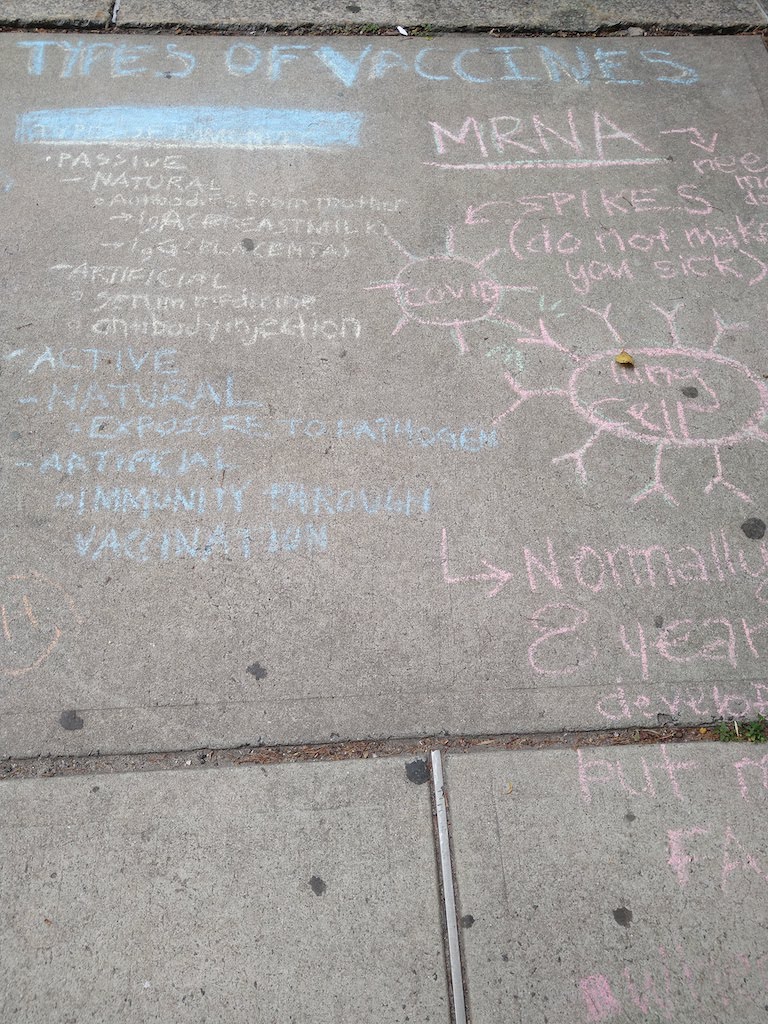 TYPES OF VACCINES
TYPES OF IMMUNITY
• PASSIVE
- NATURAL
o Antibodies from mother
→ IgA (BREASTMILK)
→ IgG (PLACENTA)
- ARTIFICIAL
o serum medicine
o antibody injection
• ACTIVE
- NATURAL
o EXPOSURE TO PATHOGEN
- ARTIFICIAL
o IMMUNITY THROUGH
VACINATION
MRNA
SPIKES
(do not make
you sick)
COVID
lung
cell
Normally
8 year
develop
put
FA